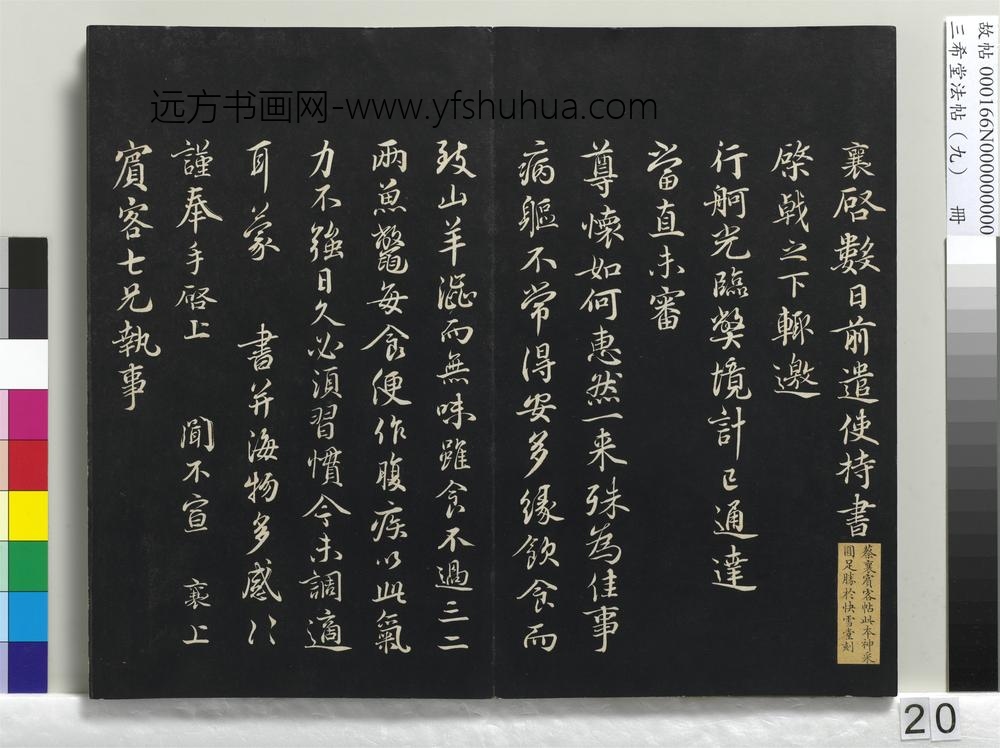 襄啓數日前遣使持書
棨戟之下輙邀
行舸光臨弊境計已通達
當直未審
尊懷如何惠然一来殊為佳事
病軀不常得安多緣飲食而
致山羊澁而無味雖食不過三二
兩魚鼈每食便作腹疾以此氣
力不強日久必須習慣今未調適
耳蒙 書并海物多感〻
謹奉手啓上 聞不宣 襄上
賓客七兄執事
蔡襄賓客帖此本神采
圓足勝於快雪堂刻
远方书画网-www.yfshuhua.com
故帖 000166N000000000
三希堂法帖（九） 冊
20